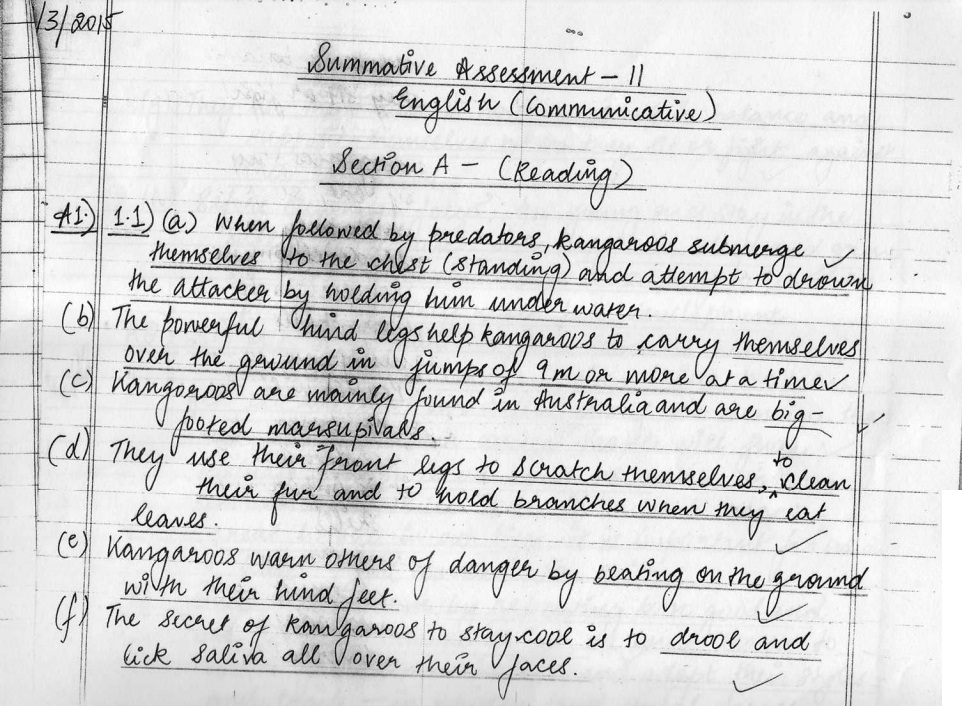 /3/2015
Summative Assessment - II
English (Communicative)
Section A - (Reading)
A1.) 1.1) (a) When followed by predators, kangaroos submerge
themselves to the chest (standing) and attempt to drown
the attacker by holding him under water.
(b) The powerful hind legs help kangaroos to carry themselves
over the ground in jumps of 9m or more at a time
(c) Kangoroos are mainly found in Australia and are big-
footed marsupivals.
(d) They use their front legs to scratch themselves, to clean
their fur and to hold branches when they eat
leaves.
(e) Kangaroos warn others of danger by beating on the ground
with their hind feet.
(f) The secret of kangaroos to stay cool is to drool and
lick saliva all over their faces.